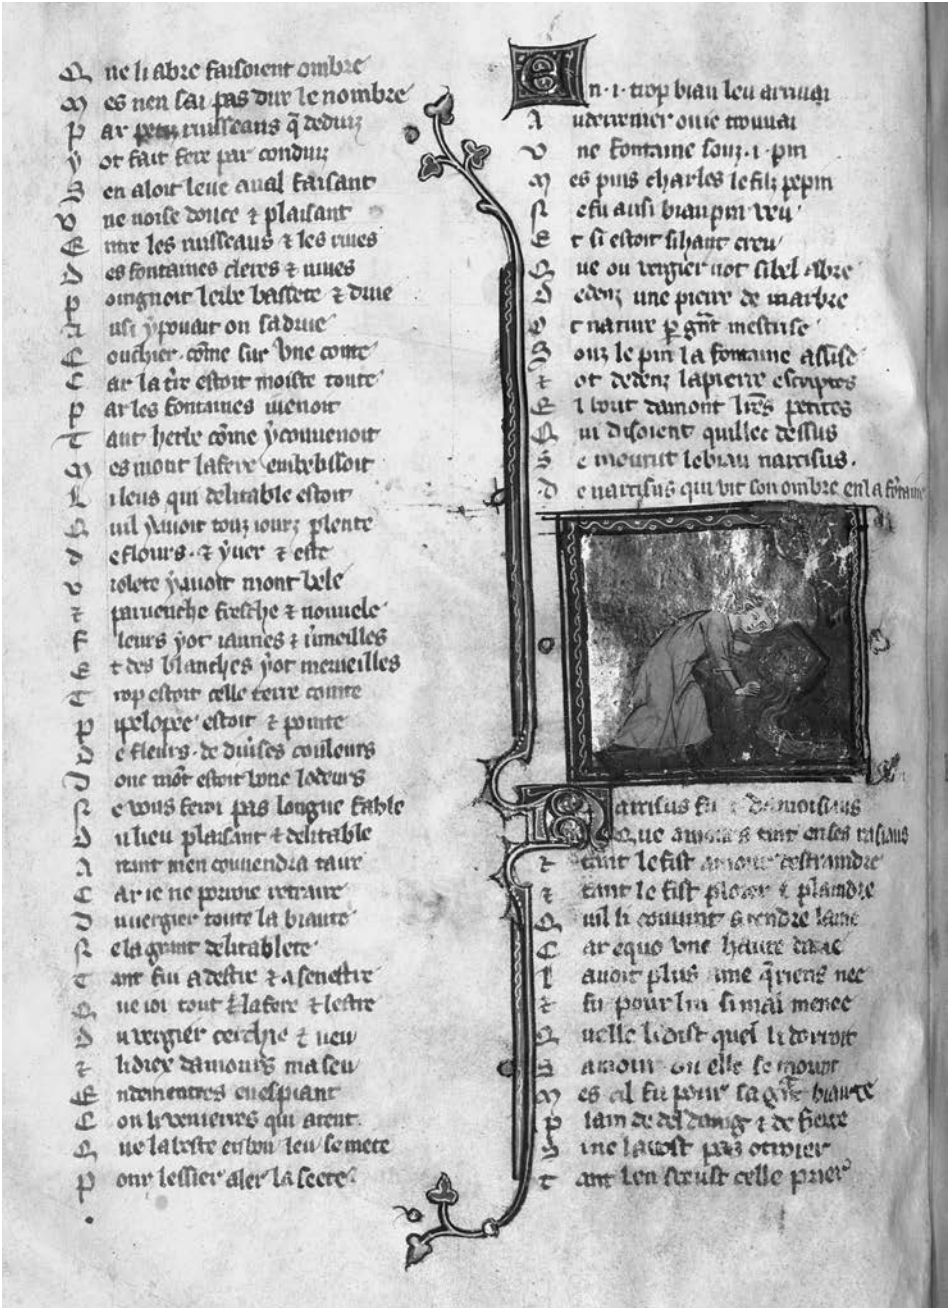 Q ne li abre faisoient ombre
M es nen sai pas dire le nombre
P ar ruisseaus q̃ deduiz
Y ot fait fere par conduiz
S en aloit leue aual faisant
V ne noise douce ⁊ plaisant
E ntre les ruisseaus ⁊ les riues
D es fontaines cleres ⁊ uiues
P oingnoit lerbe bassete ⁊ drue
A usi ẏ pouait on sa drue
C ouchier cõme sur vne coute
C ar la t̃re estoit moiste toute
P ar les fontaines uenoit
T ant herbe cõme ẏ couuenoit
M es mont lafere embebissoit
L i leus qui delitable estoit
Q uil ẏ auoit touz iourz plente
d e flours ⁊ ẏuer ⁊ este
v iolete ẏ auoit mont bele
⁊ paruenche fresche ⁊ nouuele
F leurs ẏ ot iaunes ⁊ ũmeilles
E t des blanches ẏ ot merueilles
T rop estoit celle terre cointe
P ipelopee estoit ⁊ pointe
D e fleurs de diũses couleurs
D ont mõt estoit bone lodeurs
N e vous feroi pas longue fable
D u lieu plaisant ⁊ delitable
A ntant men couuendra taire
C ar ie ne porroie retraire
D u uergier toute la biaute
N e la grant delitablete
T ant fui a destre ⁊ a senestre
Q ue ioi tout lafere ⁊ lestre
D u vergier cerchie ⁊ ueu
⁊ li diex damours ma seu
E ndementres en espiant
C on li venierres qui atent
Q ue la beste en bon leu se mete
P our lessier aler la seete
E n .i. trop biau leu arriuai
A u derrenier ou ie trouuai
V ne fontaine souz .i. pin
M es puis charles le filz pepin
N e fu ausi biau pin veu
E t si estoit si haut creu
Q ue ou vergier not si bel abre
D edenz une pierre de marbre
O t nature p g̃nt mestrise
S ouz le pin la fontaine assise
⁊ ot dedenz la pierre escriptes
E l bout damont l̃res petites
Q ui disoient quillec dessus
S e mourut le biau narcisus.
.D e narcisus qui vit son ombre en la fõtaine
N arcisus fu .i. damoisiaus
Q ue amours tint en ses raisiaus
⁊ tant le fist amour destraindre
⁊ tant le fist plorer ⁊ plaindre
Q uil li couuint a rendre lame
C ar equo vne haute dame
L auoit plus ame q̃ riens nee
⁊ fu pour lui si mal menee
Q uelle li dist quel li donroit
S amour ou elle se mourroit
M es cil fu pour sa g̃nt biaute
P lain de desdaing ⁊ de fierte
S i ne la vost pas otroier
T ant len sceust celle prier